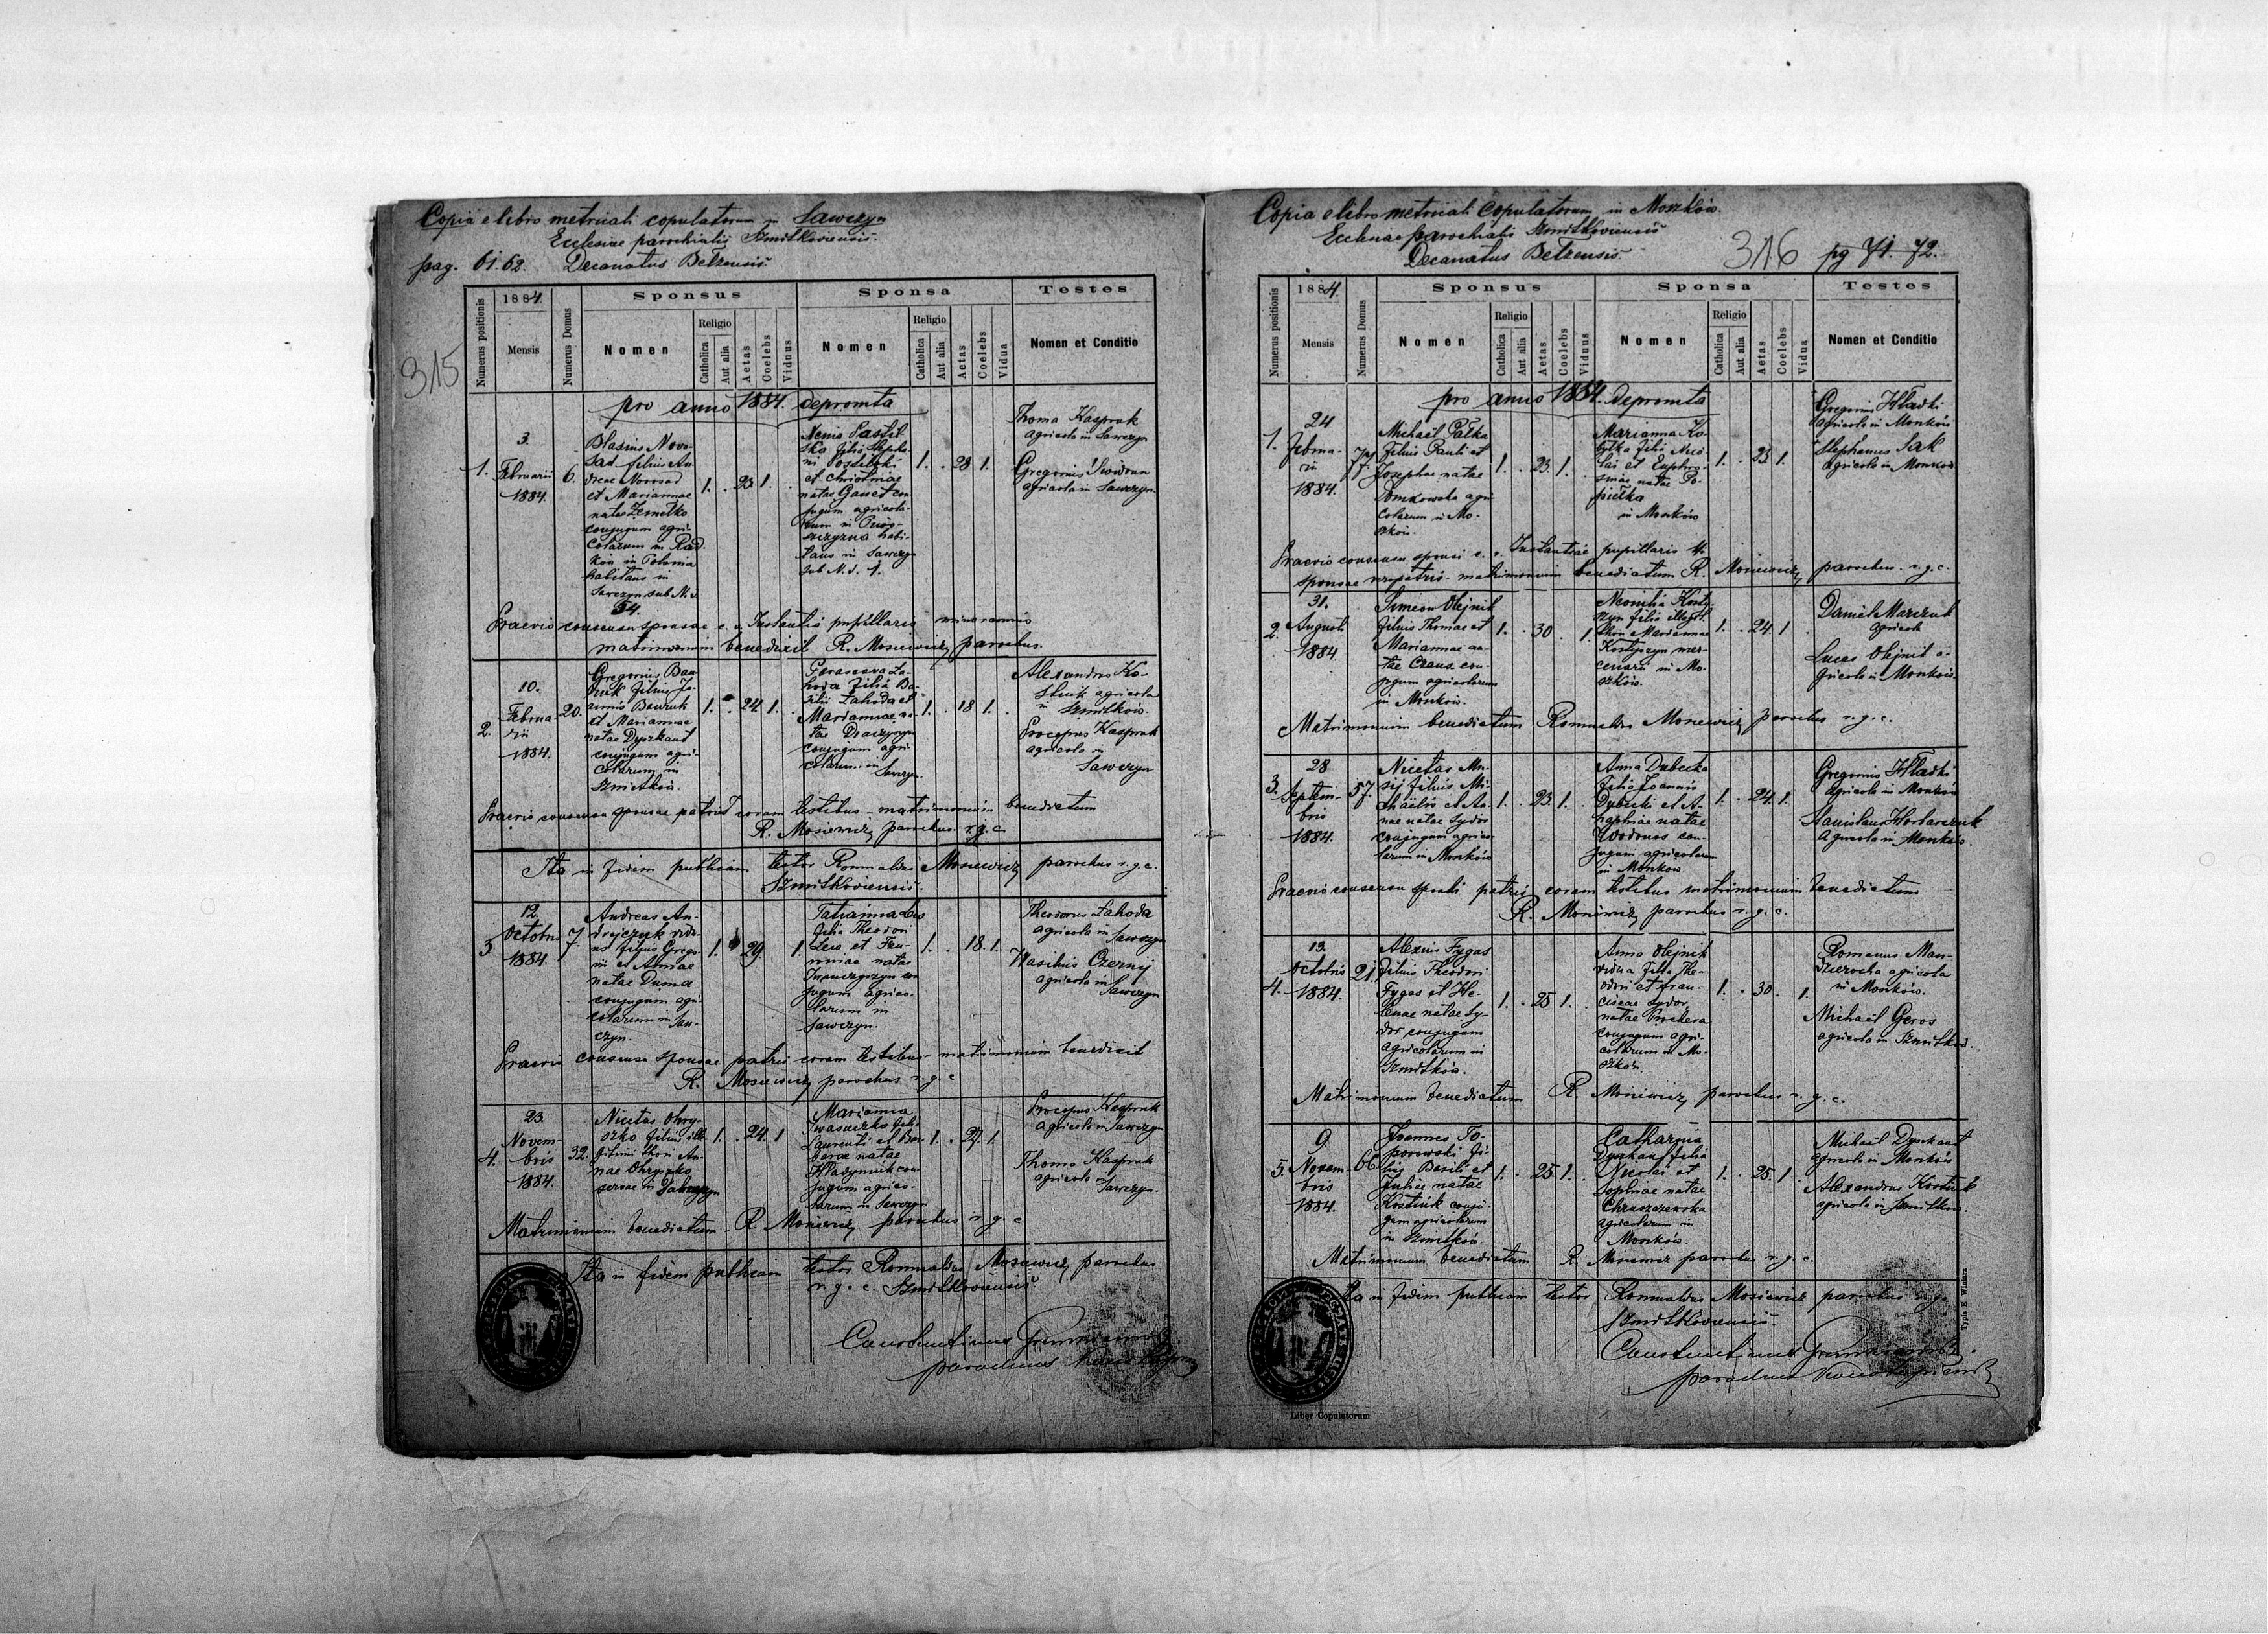 Copia e libro metricali copulatorum in Sawczyn
Ecclesiae parochialis Szmitkoviensis.
pag. 61. 62. Decanatus Belzensis.
315
Numerus positionis
1884.
Mensis
Numerus Domus
Sponsus
Nomen
Religio
Catholica
Aut alia
Aetas
Coelebs
Viduus
Sponsa
Nomen
Religio
Catholica
Aut alia
Aetas
Coelebs
Vidua
Testes
Nomen et Conditio
pro anno 1884. depromta
1.
3.
Februarii
1884.
6.
Blasius Novo-
sad filius An-
dreae Novosad
et Mariannae
natae
conjugum agri-
colarum in Rad-
kow in Polonia
habitans in
Sawczyn sub N. d.
54.
1. . 23 1. .
filia Stepha-
ni
et Christinae
natae
jugum agricola-
rum in
habi-
tans in Sawczyn
sub N. d. 1.
1. . 28 1.
Thoma Kaspruk
agricola in Sawczyn
Gregorius
agricola in Sawczyn
Praevio consensu sponsae c. r. Instantiae pupillaris
matrimonium benedixit R. Mosiewicz parochus.
2.
10.
Februa-
rii
1884.
20.
Gregorius
filius Jo-
annis
et Mariannae
natae Dyszkant
conjugum agri-
colarum in
Szmitków.
1. . 24 1. .
Lahoda filia Ba-
silii Lahoda et
Mariannae na-
tae
conjugum agri-
colarum in
Sawczyn.
1. . 18 1. .
Alexandrus Ko-
stiuk agricola
in Szmitków.
Procopius Kaspruk
agricola in
Sawczyn
Praevio consensu sponsae patris coram testibus matrimonium benedictum
R. Mosiewicz parochus r. g. c.
Ita in fidem publicam testor Romualdus Mosiewicz parochus r. g. c.
Szmitkoviensis.
3
12.
Octobris
1884.
7.
Andreas An-
drejczuk vidu-
us filius Grego-
rii et Annae
natae Duma
conjugum agri-
colarum in Saw-
czyn.
1. 29 1.
Tatianna Lew
filia Theodori
Lew et
natae
con-
jugum agrico-
larum in
Sawczyn.
1. . 18. 1.
Theodorus Lahoda
agricola in
Sawczyn
Wasilius Czernij
agricola in
Sawczyn
Praevio consensu sponsae patris coram testibus matrimonium benedixit
R. Mosiewicz parochus r. g. c
4.
23.
Novem-
bris
1884.
32.
Nicetas Ohry-
szko filius ille-
gitimi thori An-
nae Ohryszko
servae in Sawczyn
1. . 24. 1
Marianna
filia
Laurentii et Bar-
barae natae
con-
jugum agrico-
larum in Sawczyn
1. . 1.
Procopius Kaspruk
agricola in Sawczyn
Thoma Kaspruk
agricola in
Sawczyn.
Matrimonium benedictum R. Mosiewicz parochus r. g. c
Ita in fidem publicam testor Romualdus Mosiewicz parochus
r. g. c. Szmitkoviensis.
Constantinus
parochus
Copia e libro metricali Copulatorum in Moszków.
Ecclesiae parochialis Szmitkoviensis
Decanatus Belzensis.
316 pg 71. 72.
Numerus positionis
1884.
Mensis
Numerus Domus
Sponsus
Nomen
Religio
Catholica
Aut alia
Aetas
Coelebs
Viduus
Sponsa
Nomen
Religio
Catholica
Aut alia
Aetas
Coelebs
Vidua
Testes
Nomen et Conditio
pro anno 1884. depromta
1.
24
Februa-
rii
1884.
77
Michael Pałka
filius Pauli et
Josephae natae
agri-
colarum in Mo-
szków.
1. . 23. 1. .
Marianna Ko-
filia Nico-
lai et Euphro-
sinae natae Po-
piełka
in Moszków
1. . 23 1.
Gregorius Hładki
agricola in Moszków
Stephanus Sak
agricola in Moszków
Praevio consensu sponsi c. r. Instantiae pupillaris et
sponsae patris matrimonium benedictum R. Mosiewicz parochus r. g. c.
2.
31.
Augusti
1884.
Simeon Olejnik
filius Thomae et
Mariannae na-
tae con-
jugum agricolarum
in Moszków.
1. . 30 . 1.
filia illegit.
thori Mariannae
mer-
cenarii in Mo-
szków.
1. . 24. 1 .
Daniel Marczuk
agricola
Lucas Olejnik a-
gricola in Moszków.
Matrimonium benedictum Romualdus Mosiewicz parochus r. g. c.
3.
28
Septem-
bris
1884.
57.
Nicetas
filius Mi-
chaelis et An-
nae natae Sydor
conjugum agrico-
larum in Moszków
1. . 23. 1. .
Anna Dubecka
filia Joannis
Dubecki et A-
gaphiae natae
con-
jugum agricolarum
in Moszków
1. . 24. 1.
Gregorius Hładki
agricola in Moszków
Stanislaus
agricola in Moszków.
Praevio consensu sponsi patris coram testibus matrimonium benedictum
R. Mosiewicz parochus r. g. c.
4.
19.
Octobris
1884.
21.
Alexius Fygas
filius Theodori
Fygas et He-
lenae natae Sy-
dor conjugum
agricolarum in
Szmitków.
1. . 25 1. .
Anna Olejnik
vidua filia The-
odori et Fran-
ciscae Sydor
natae
conjugum agri-
colarum in Mo-
szków.
1. . 30. 1.
Romanus
agricola
in Moszków.
Michael Geros
agricola in Szmitków.
Matrimonium benedictum R. Mosiewicz parochus r. g. c.
5.
9.
Novem-
bris
1884.
66
Joannes To-
porowski fi-
lius Basilii et
Juliae natae
Kostiuk conju-
gum agricolarum
in Szmitków.
1. . 25 1. .
Catharina
Dyszkant filia
Nicolai et
Sophiae natae
Chruszczewska
agricolarum in
Moszków.
1. . 25. 1
Michael Dyszkant
agricola in Moszków
Alexandrus Kostiuk
agricola in Szmitków.
Matrimonium benedictum R. Mosiewicz parochus r. g. c.
Ita in fidem publicam testor Romualdus Mosiewicz parochus r. g. c.
Szmitkoviensis.
Constantinus
parochus
Liber Copulatorum